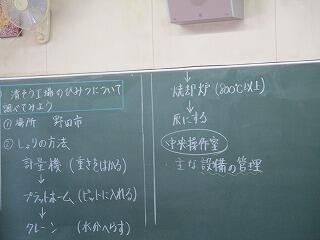 清そう工場のひみつについて
調べてみよう
① 場所 野田市
② しょりの方法
計量機 (重さをはかる)
↓
プラットホーム (ピットに入れる)
↓
クレーン (水分へらす)
↓
焼却炉 (800℃以上)
↓
灰にする
中央操作室
・主な設備の管理